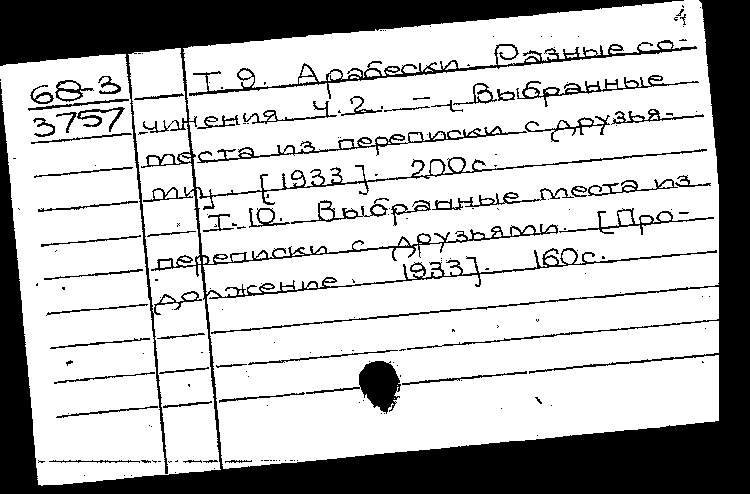 4
68-3
3757
Т. 9. Арабески. Разные со-
чинения. Ч. 2. – Выбранные
места из переписки с друзья-
ми. [1933]. 200с.
Т. 10. Выбранные места из
переписки с друзьями. [Про-
должение. 1933]. 160с.